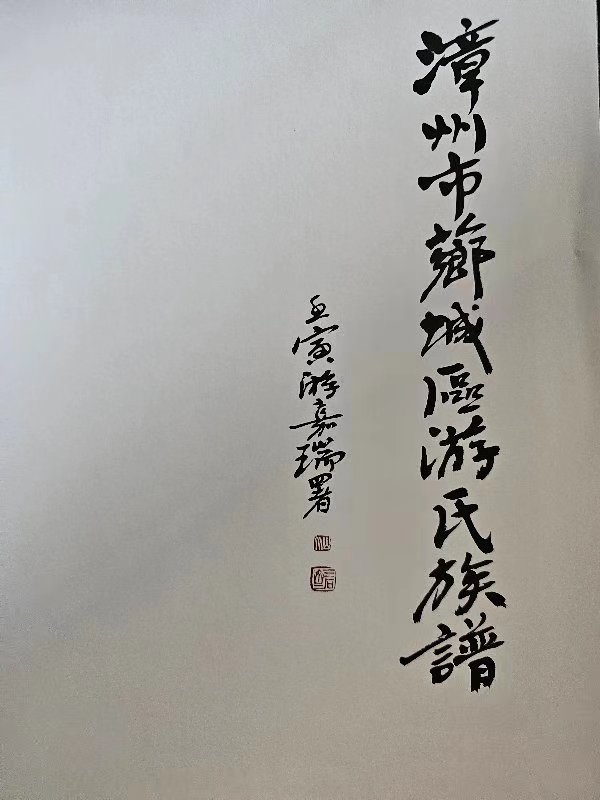 漳州市薌城區游氏族譜
壬寅游嘉瑞署